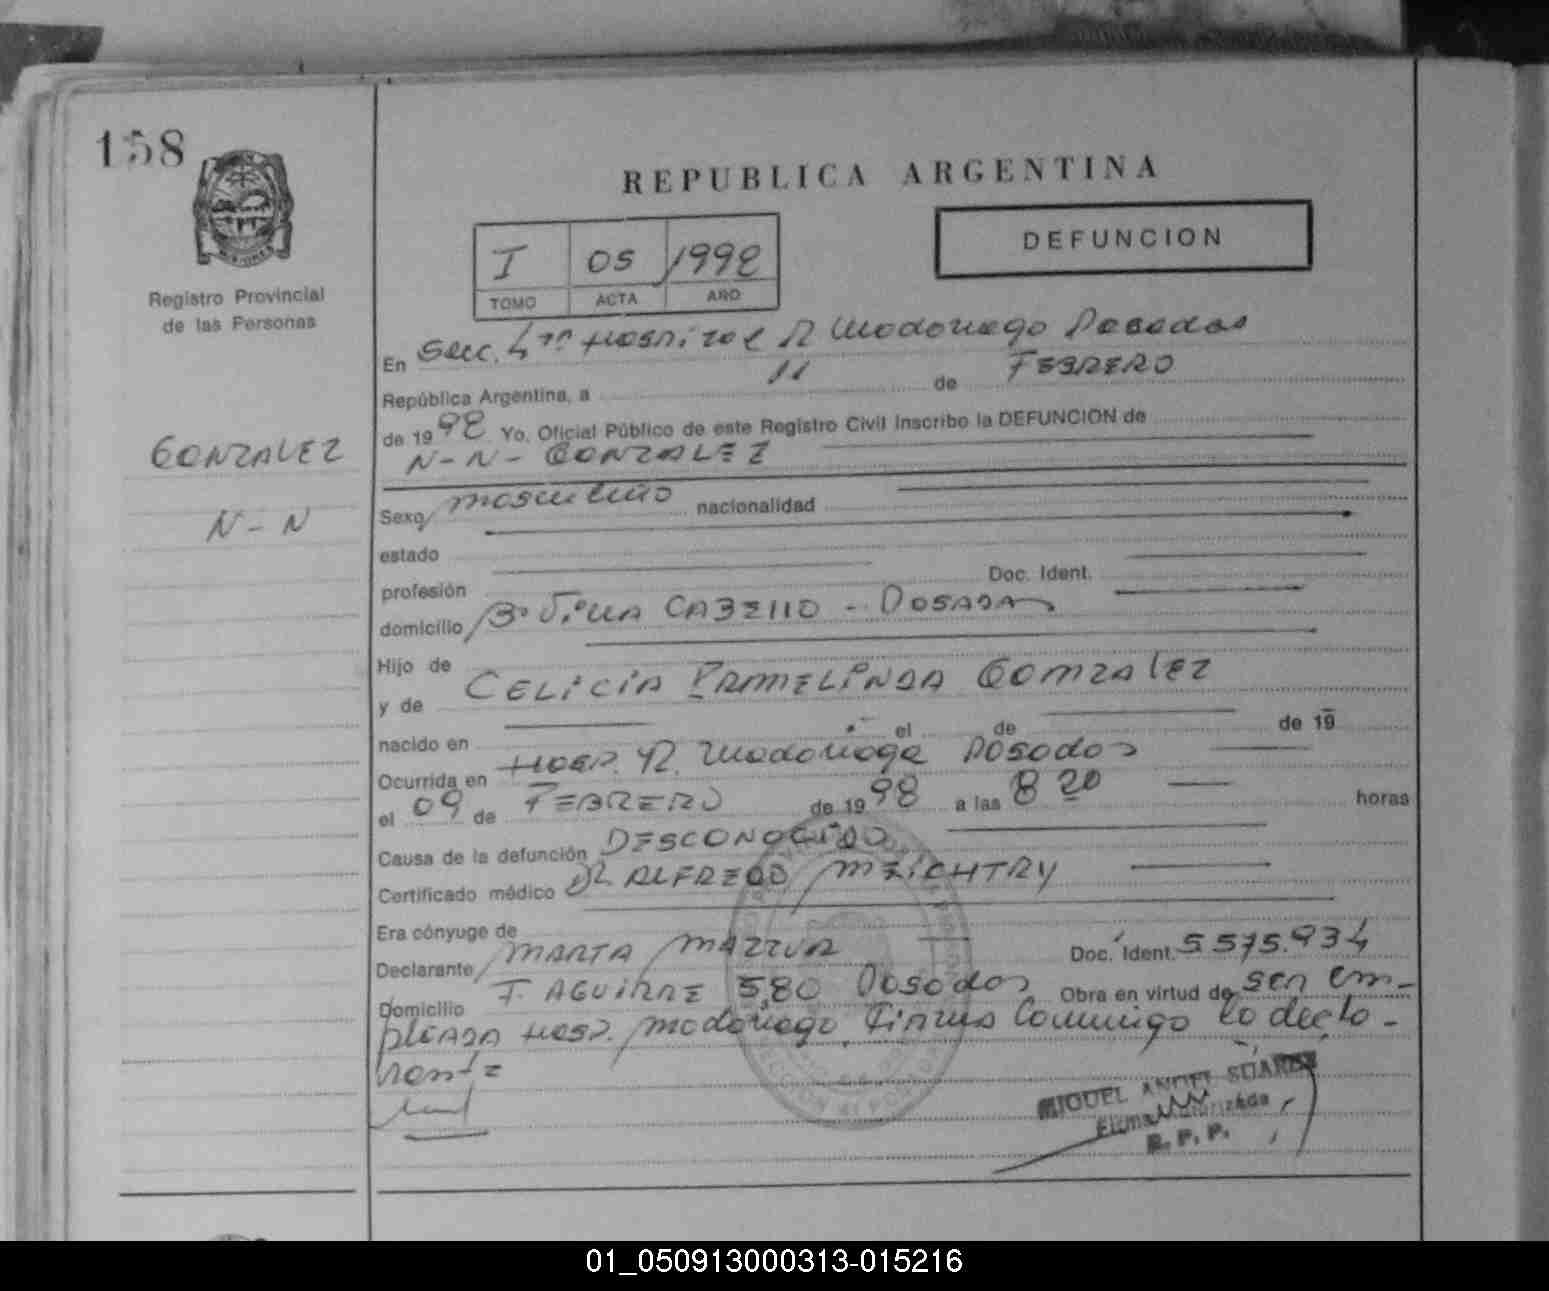 158
REPUBLICA ARGENTINA
I 05 1998
TOMO ACTA AÑO
DEFUNCION
Registro Provincial
de las Personas
GONZALEZ
N-N
En Secc. 4ta Hospital R Madariaga Posadas
República Argentina, a 11 de FEBRERO
de 1998 Yo, Oficial Público de este Registro Civil Inscribo la DEFUNCION de
N-N- GONZALEZ
Sexo masculino nacionalidad
estado
profesión Doc. Ident.
domicilio Bº Villa CABELLO - POSADAS
Hijo de
y de CELICIA ERMELINDA GONZALEZ
nacido en el de de 19
Ocurrida en Hosp. R. Madariaga Posadas
el 09 de FEBRERO de 1998 a las 8 20 horas
Causa de la defunción DESCONOCIDO
Certificado médico DR ALFREDO MEICHTRY
Era cónyuge de
Declarante MARTA MAZZUR Doc. Ident. 5.575.934
Domicilio F. AGUIRRE 580 Posadas Obra en virtud de ser em-
pleada Hosp. Madariaga Firma Conmigo la decla-
rante
MIGUEL ANGEL SUAREZ
Firma Autorizada
R. P. P.
01_050913000313-015216